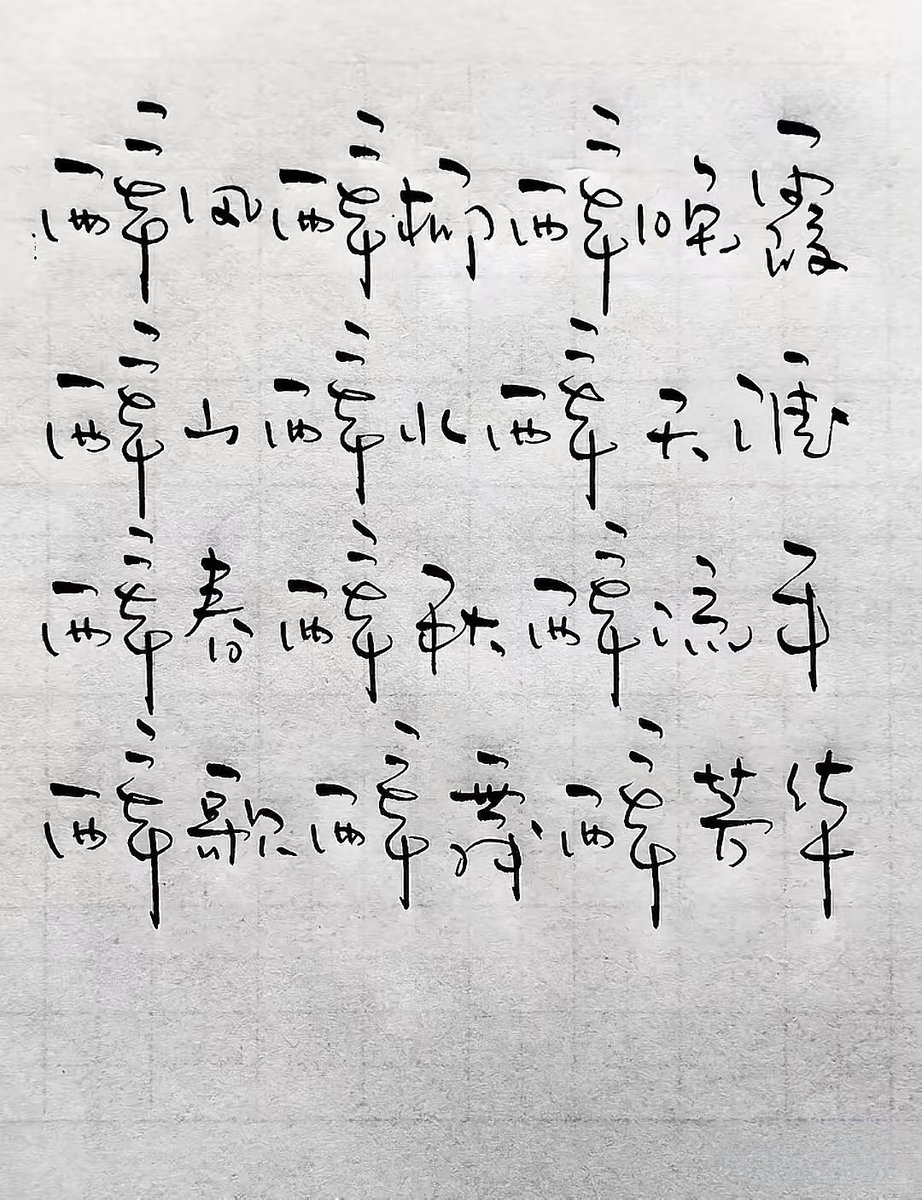 醉风醉柳醉晚霞
醉山醉水醉天涯
醉春醉秋醉流年
醉歌醉舞醉芳华